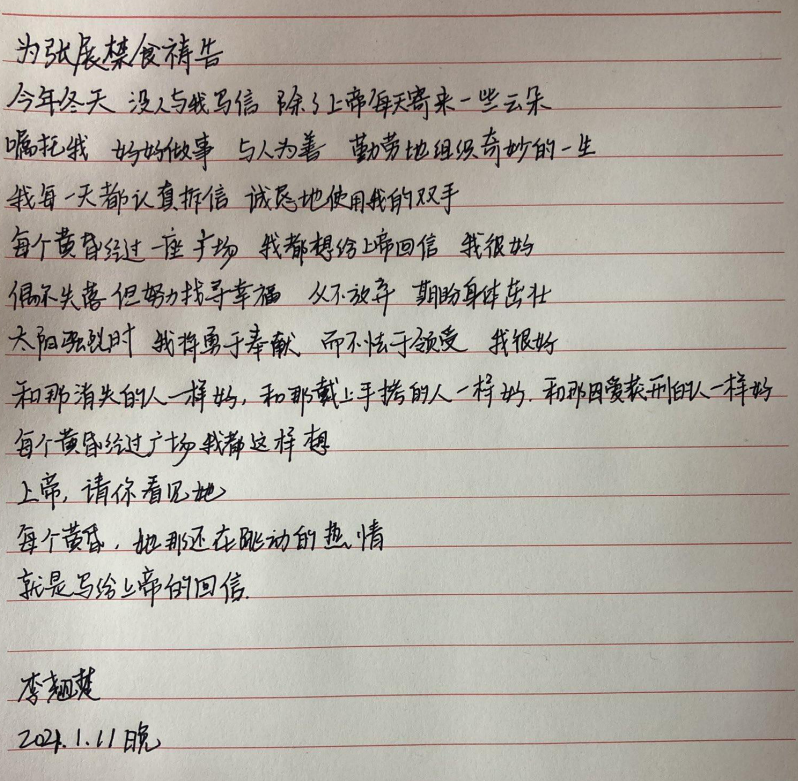 为张展禁食祷告
今年冬天 没人与我写信 除了上帝每天寄来一些云朵
嘱托我 好好做事 与人为善 勤劳地组织奇妙的一生
我每一天都认真拆信 诚恳地使用我的双手
每个黄昏经过一座广场 我都想给上帝回信 我很好
偶尔失落 但努力找寻幸福 从不放弃 期盼身体茁壮
太阳强烈时 我将勇于奉献 而不怯于领受 我很好
和那消失的人一样好，和那戴上手铐的人一样好，和那因爱获刑的人一样好
每个黄昏经过广场 我都这样想
上帝，请你看见她
每个黄昏，她那还在跳动的热情
就是写给上帝的回信.
李翘楚
2021.1.11晚